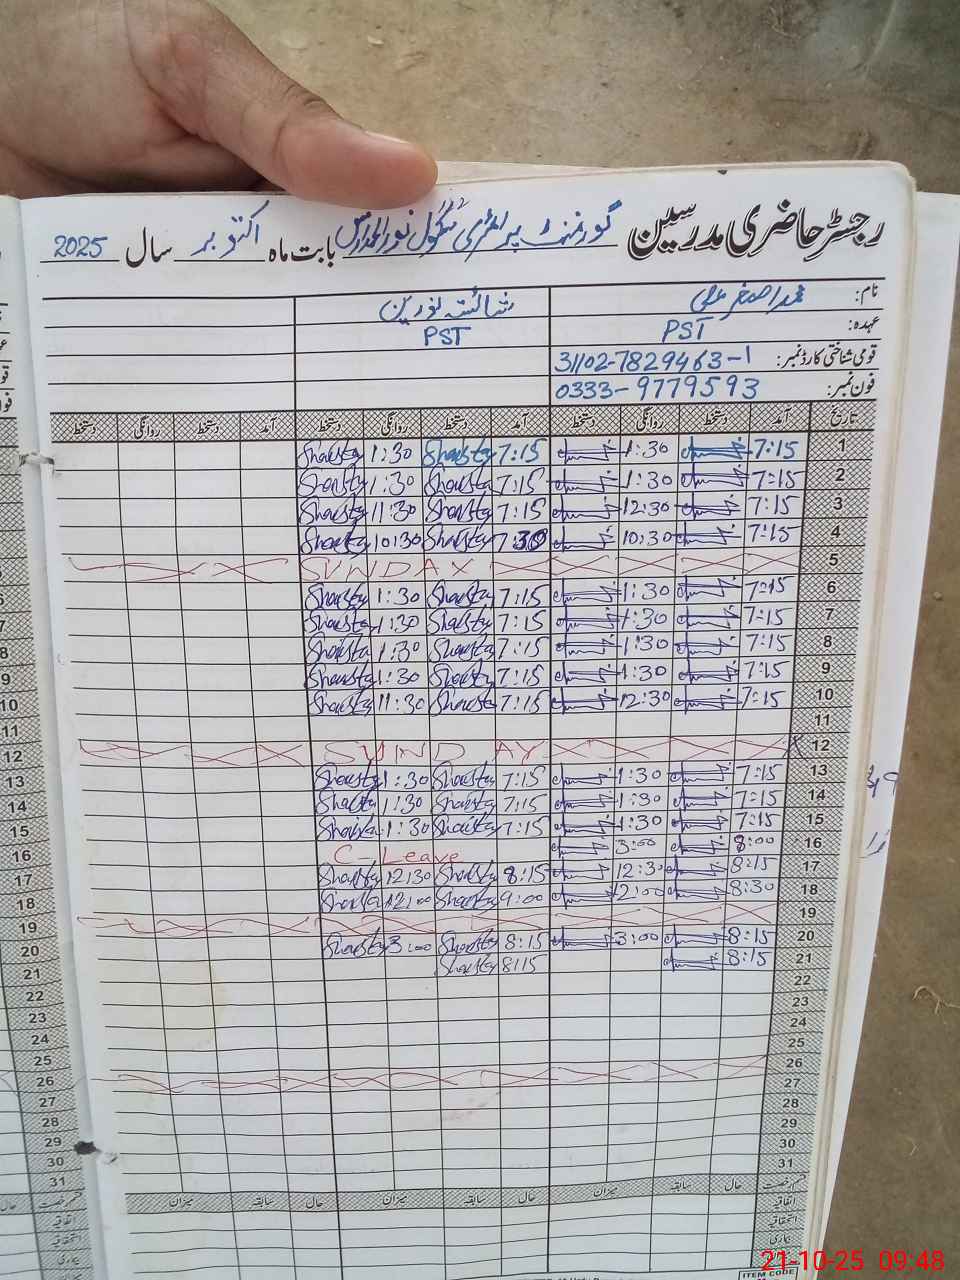 رجسٹر حاضری مدرسین گورنمنٹ پرائمری سکول نورالمدارس بابت ماہ اکتوبر سال 2025
نام: محمد اصغر علی شائستہ نورین
عہدہ: PST PST
قومی شناختی کارڈ نمبر: 31102-7829463-1
فون نمبر: 0333-9779593
تاریخ آمد دستخط روانگی دستخط آمد دستخط روانگی دستخط آمد دستخط روانگی دستخط
1 7:15 1:30 7:15 Shaista 1:30 Shaista
2 7:15 1:30 7:15 Shaista 1:30 Shaista
3 7:15 12:30 7:15 Shaista 11:30 Shaista
4 7:15 10:30 7:30 Shaista 10:30 Shaista
5 SUNDAY
6 7:15 1:30 7:15 Shaista 1:30 Shaista
7 7:15 1:30 7:15 Shaista 1:30 Shaista
8 7:15 1:30 7:15 Shaista 1:30 Shaista
9 7:15 1:30 7:15 Shaista 1:30 Shaista
10 7:15 12:30 7:15 Shaista 11:30 Shaista
11
12 SUNDAY
13 7:15 1:30 7:15 Shaista 1:30 Shaista
14 7:15 1:30 7:15 Shaista 1:30 Shaista
15 7:15 1:30 7:15 Shaista 1:30 Shaista
16 8:00 3:00 C-Leave
17 8:15 12:30 8:15 Shaista 12:30 Shaista
18 8:30 12:00 9:00 Shaista 12:00 Shaista
19
20 8:15 3:00 8:15 Shaista 3:00 Shaista
21 8:15 8:15 Shaista
22
23
24
25
26
27
28
29
30
31
قسم رخصت حال سابقہ میزان حال سابقہ میزان حال سابقہ میزان
اتفاقیہ
استحقاقیہ
بیماری
ITEM CODE
21-10-25 09:48